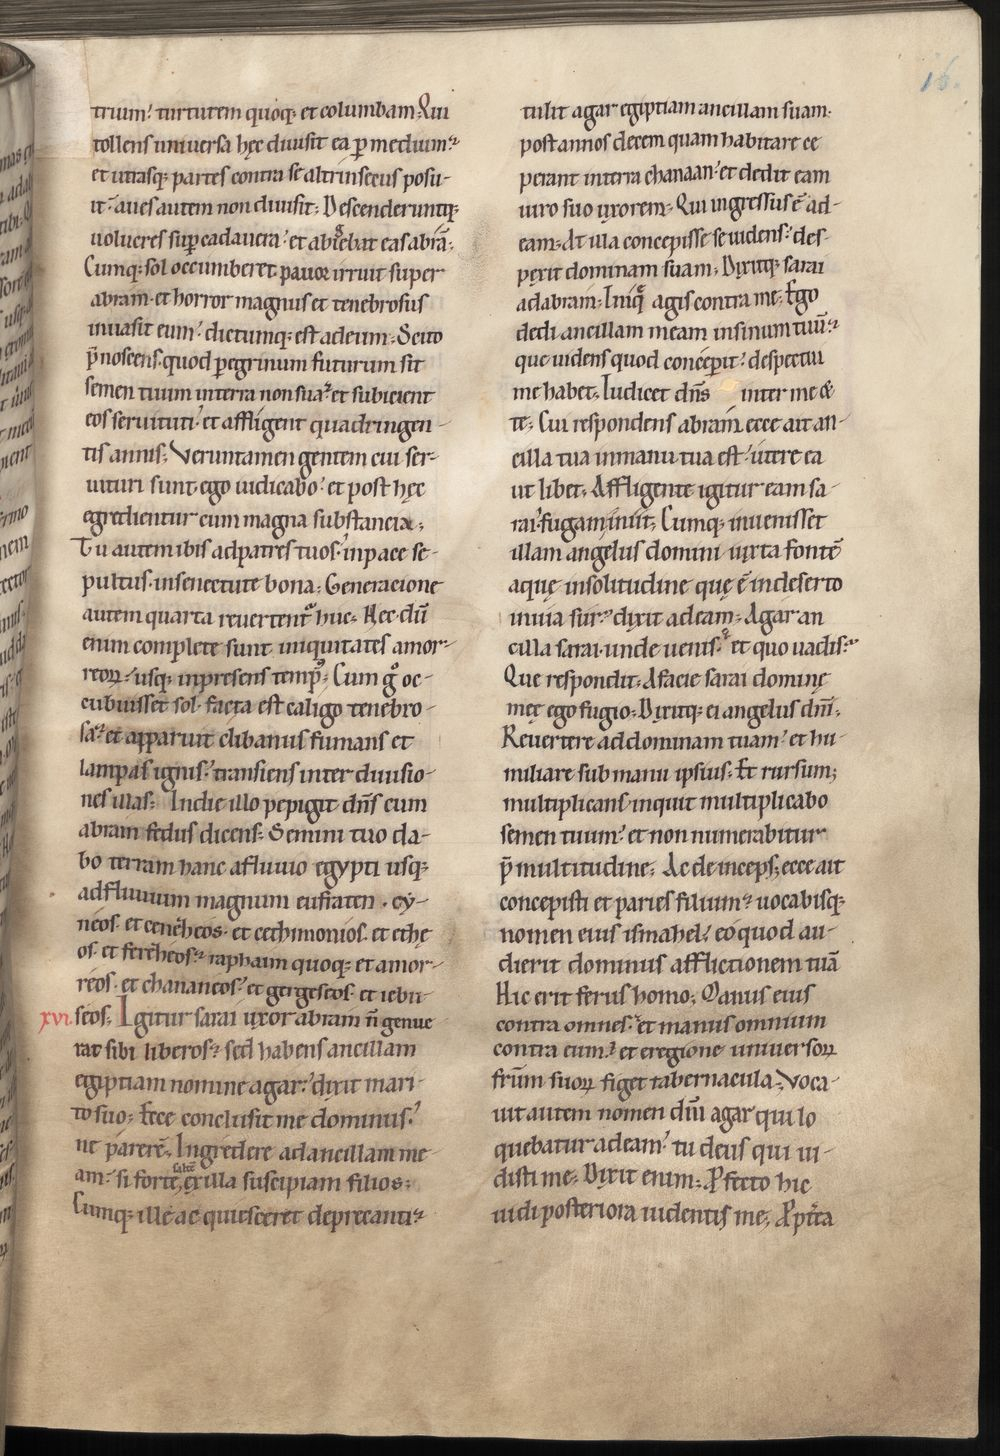 16.
trium? turturem quoq; et columbam; Qui
tollens uniuersa hęc diuisit ea p̱ medium:
et utrasq; partes contra se altrinsecus posu-
it: aues autem non diuisit; Descenderuntq;
uolucres sup̱ cadauera? et abiebat eas abrā;
Cumq; sol occumberet pauor irruit super
abram· et horror magnus et tenebrosus
inuasit eum? dictumq; est ad eum; Scito
p̄noscens· quod p̱egrinum futurum sit
semen tuum in terra non sua? et subicient
eos seruituti? et affligent quadringen-
tis annis; Veruntamen gentem cui ser-
uituri sunt· ego iudicabo? et post hęc
egredientur cum magna substancia;
Tu autem ibis ad patres tuos? in pace se-
pultus· in senectute bona; Generacione
autem quarta reuertent᷑ huc; Nec dū
enim complete sunt iniquitates amor-
reoꝝ? usq; in presens temp⁹; Cum gͦ oc-
cubuisset sol· facta est caligo tenebro-
sa? et apparuit clibanus fumans et
lampas ignis? transiens inter diuisio-
nes illas; In die illo pepigit dn̄s cum
abram fedus dicens; Semini tuo da-
bo terram hanc a fluuio egypti usq;
ad fluuium magnum eufraten· cy-
neos· et ceneheos· et cethmonios· et ethe
os· et ferêheos? raphaim quoq; et amor-
reos· et chananeos? et gergeseos· et iebu-
xvi. seos; Igitur sarai uxor abram n̄ genue
rat sibi liberos? sed habens ancillam
egiptiam nomine agar? dixit mari-
to suo; Ecce conclusit me dominus?
ne parerē; Ingredere ad ancillam me-
am? si forte saltē ex illa suscipiam filios;
Cumq; ille ac quiesceret deprecanti?
tulit agar egiptiam ancillam suam·
post annos decem quam habitare ce
perant in terra chanaan· et dedit eam
uiro suo uxorem; Qui ingressus ē ad-
eam; At illa concepisse se uidens? des-
pexit dominam suam; Dixitq; sarai
ad abram; Iniq̄ agis contra me; Ego
dedi ancillam meam in sinum tuū?
que uidens quod conceperit? despectui
me habet; Iudicet dn̄s inter me &
te; Cui respondens abram ecce ait an-
cilla tua in manu tua est? utere ea
ut libet; Affligente igitur eam sa-
rai? fugam iniit; Cumq; inuenisset
illam angelus domini iuxta fontē
aquę in solitudine quę ē in deserto
in uia sur? dixit ad eam; Agar an
cilla sarai· unde uenis? et quo uadis?
Que respondit; A facie sarai dominę
meę ego fugio; Dixitq; ei angelus dn̄i;
Reuertere ad dominam tuam? et hu-
miliare sub manu ipsius; Et rursum;
multiplicans inquit multiplicabo
semen tuum? et non numerabitur
p̄ multitudine; Ac deinceps; ecce ait
concepisti et paries filium? uocabisq;
nomen eius ismahel? eo quod au-
dierit dominus afflictionem tuā
Hic erit ferus homo; Manus eius
contra omnes? et manus omnium
contra eum? et e regione uniuersoꝝ
fr̄um suoꝝ figet tabernacula; Voca-
uit autem nomen dn̄i agar qui lo
quebatur ad eam? tu deus qui ui-
disti me; Dixit enim; P̱fecto hic
uidi posteriora uidentis me; P̱pt̄ea